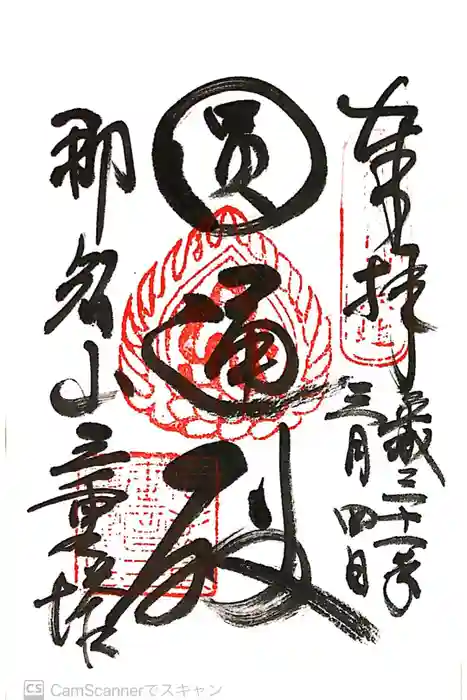 奉拝
平成三十一年
三月四日
圓通殿
山三重塔
CS CamScannerでスキャン